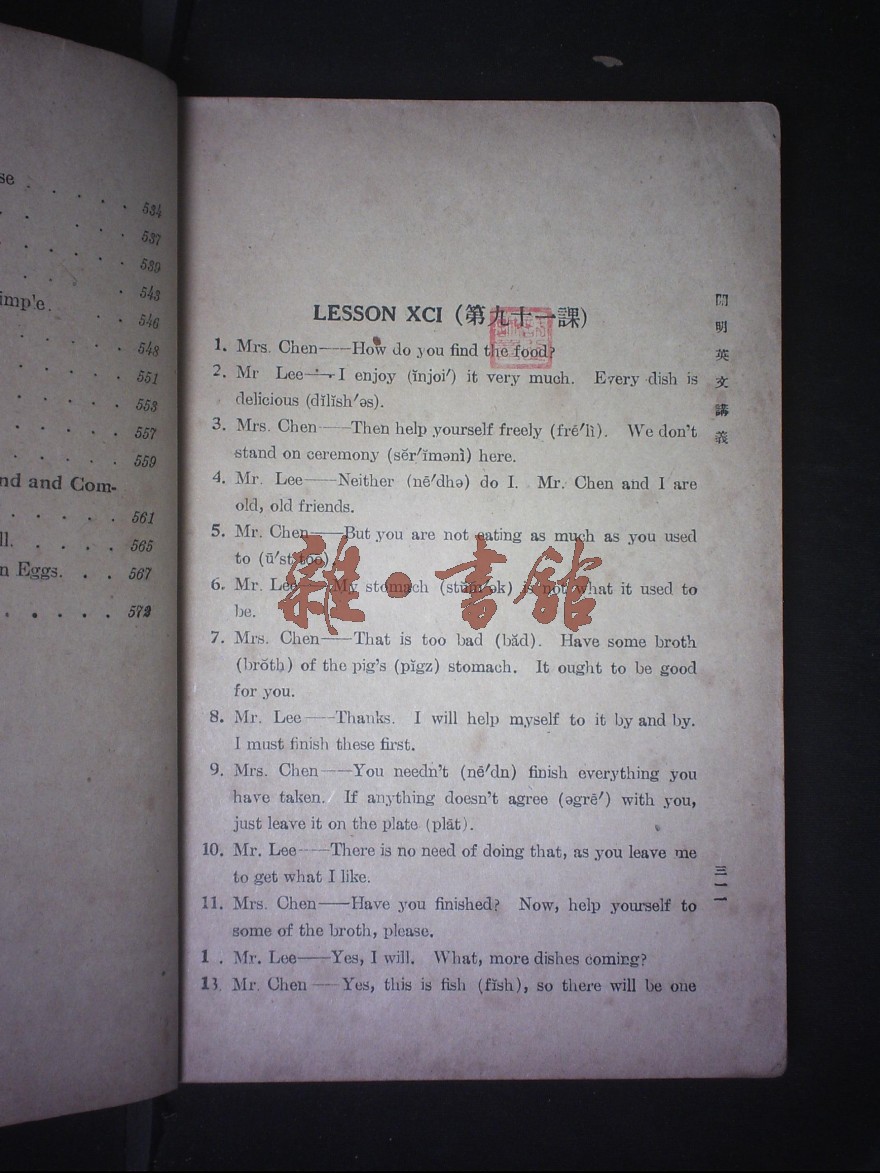 se . . . . . 534
. . . . . 537
. . . . . 539
. . . . . 543
imp'e. . . . 546
. . . . . 548
. . . . . 551
. . . . . 553
. . . . . 557
. . . . . 559
nd and Com-
. . . . . 561
ll. . . . . 565
n Eggs. . . 567
. . . . . 572
LESSON XCI (第九十一課)
1. Mrs. Chen——How do you find the food?
2. Mr Lee——I enjoy (ĭnjoi′) it very much. Every dish is
delicious (dĭlĭsh′əs).
3. Mrs. Chen——Then help yourself freely (frē′lĭ). We don't
stand on ceremony (sĕr′ĭmənĭ) here.
4. Mr. Lee——Neither (nē′dhə) do I. Mr. Chen and I are
old, old friends.
5. Mr. Chen——But you are not eating as much as you used
to (ū′st too).
6. Mr. Lee——My stomach (stŭm′ək) is not what it used to
be.
7. Mrs. Chen——That is too bad (băd). Have some broth
(brŏth) of the pig's (pĭgz) stomach. It ought to be good
for you.
8. Mr. Lee——Thanks. I will help myself to it by and by.
I must finish these first.
9. Mrs. Chen——You needn't (nē′dn) finish everything you
have taken. If anything doesn't agree (əgrē′) with you,
just leave it on the plate (plāt).
10. Mr. Lee——There is no need of doing that, as you leave me
to get what I like.
11. Mrs. Chen——Have you finished? Now, help yourself to
some of the broth, please.
1 . Mr. Lee——Yes, I will. What, more dishes coming?
13. Mr. Chen——Yes, this is fish (fĭsh), so there will be one
開明英文講義
三一一
雜·書館